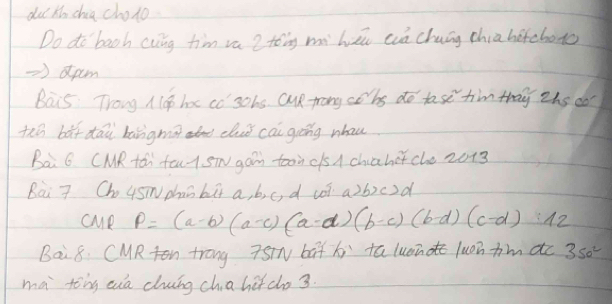 dư kh chia cho 10
Do đó bạch cũng tìm va 2 tổng mà hiệu của chúng chia hết cho 10
=> đpcm
Bài 5 Trong 1 lớp học có 30 hs. CMR trong số hs đó ta sẽ tìm thấy 2 hs có
tên bắt đầu bằng một chữ cái giống nhau.
Bài 6 CMR tồn tại 1 STN gồm toàn c/s 1 chia hết cho 2013
Bài 7 Cho 4 STN phân biệt a, b, c, d với a>b>c>d
CMR P = (a-b)(a-c)(a-d)(b-c)(b-d)(c-d) ⋮ 12
Bài 8. CMR trong 7 STN bất kì ta luôn tìm đc 3 số
mà tổng của chúng chia hết cho 3.